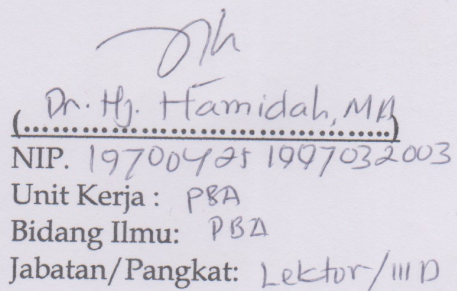 (Dr. Hj. Hamidah, MA)
NIP. 19700425 1997032003
Unit Kerja : PBA
Bidang Ilmu: PBA
Jabatan/Pangkat: Lektor/III D